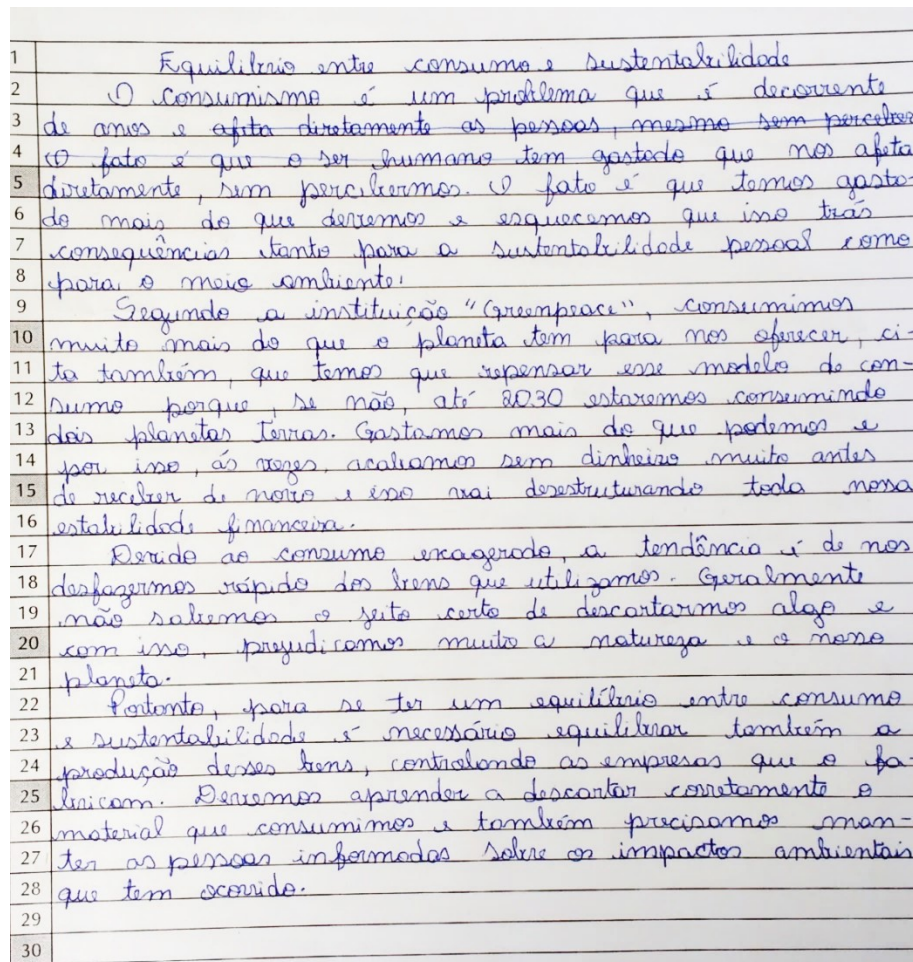 1 Equilibrio entre consumo e sustentabilidade
2 O consumismo é um problema que é decorrente
3 de anos e afeta diretamente as pessoas, mesmo sem perceber
4 O fato é que o ser humano tem gastado que nos afeta
5 diretamente, sem percebermos. O fato é que temos gasta-
6 do mais do que devemos e esquecemos que isso trás
7 consequências tanto para a sustentabilidade pessoal como
8 para o meio ambiente.
9 Segundo a instituição "Greenpeace", consumimos
10 muito mais do que o planeta tem para nos oferecer, ci-
11 ta também, que temos que repensar esse modelo de con-
12 sumo porque, se não, até 2030 estaremos consumindo
13 dois planetas Terras. Gastamos mais do que podemos e
14 por isso, ás vezes, acabamos sem dinheiro muito antes
15 de receber de novo e isso vai desestruturando toda nossa
16 estabilidade financeira.
17 Devido ao consumo exagerado, a tendência é de nos
18 desfazermos rápido dos bens que utilizamos. Geralmente
19 não sabemos o jeito certo de descartarmos algo e
20 com isso, prejudicamos muito a natureza e o nosso
21 planeta.
22 Portanto, para se ter um equilíbrio entre consumo
23 e sustentabilidade é necessário equilibrar também a
24 produção desses bens, controlando as empresas que o fa-
25 bricam. Devemos aprender a descartar corretamente o
26 material que consumimos e também precisamos man-
27 ter as pessoas informadas sobre os impactos ambientais
28 que tem ocorrido.
29
30